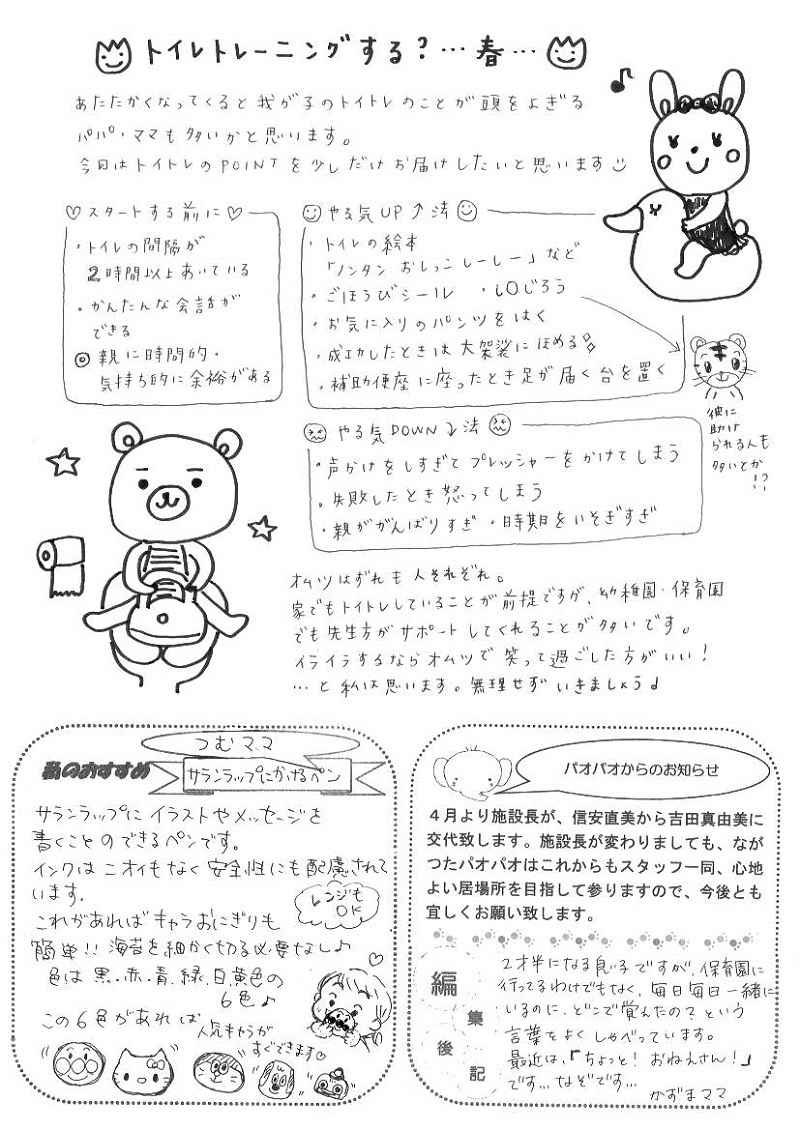 トイレトレーニングする?…春…
あたたかくなってくると我が子のトイトレのことが頭をよぎる
パパ・ママも多いかと思います。
今回はトイトレのPOINTを少しだけお届けしたいと思います
♡スタートする前に♡
・トイレの間隔が
2時間以上あいている
・かんたんな会話が
できる
◎親に時間的・
気持ち的に余裕がある
やる気UP↑法
・トイレの絵本
「ノンタン おしっこしーしー」など
・ごほうびシール ・i0じろう
・お気に入りのパンツをはく
・成功したときは大袈裟にほめる
・補助便座に座ったとき足が届く台を置く
彼に
助け
られる人も
多いとか
!?
やる気DOWN↓法
・声かけをしすぎてプレッシャーをかけてしまう
・失敗したとき怒ってしまう
・親ががんばりすぎ ・時期をいそぎすぎ
オムツはずれも人それぞれ。
家でもトイトレしていることが前提ですが、幼稚園・保育園
でも先生方がサポートしてくれることが多いです。
イライラするならオムツで笑って過ごした方がいい!
…と私は思います。無理せずいきましょう♩
つむママ
私のおすすめ
サランラップにかけるペン
サランラップにイラストやメッセージを
書くことのできるペンです。
インクはニオイもなく安全性にも配慮されて
います。
レンジも
OK
これがあればキャラおにぎりも
簡単!!海苔を細かく切る必要なし♪
色は黒.赤.青.緑.白.黄色の
6色♪
この6色があれば
人気キャラが
すぐできます♡
パオパオからのお知らせ
4月より施設長が、信安直美から吉田真由美に
交代致します。施設長が変わりましても、なが
つたパオパオはこれからもスタッフ一同、心地
よい居場所を目指して参りますので、今後とも
宜しくお願い致します。
編集後記
2才半になる良い子ですが、保育園に
行ってるわけでもなく、毎日毎日一緒に
いるのに、どこで覚えたの?という
言葉をよくしゃべっています。
最近は、「ちょっと!おねえさん!」
です…なぞです…
かずまママ